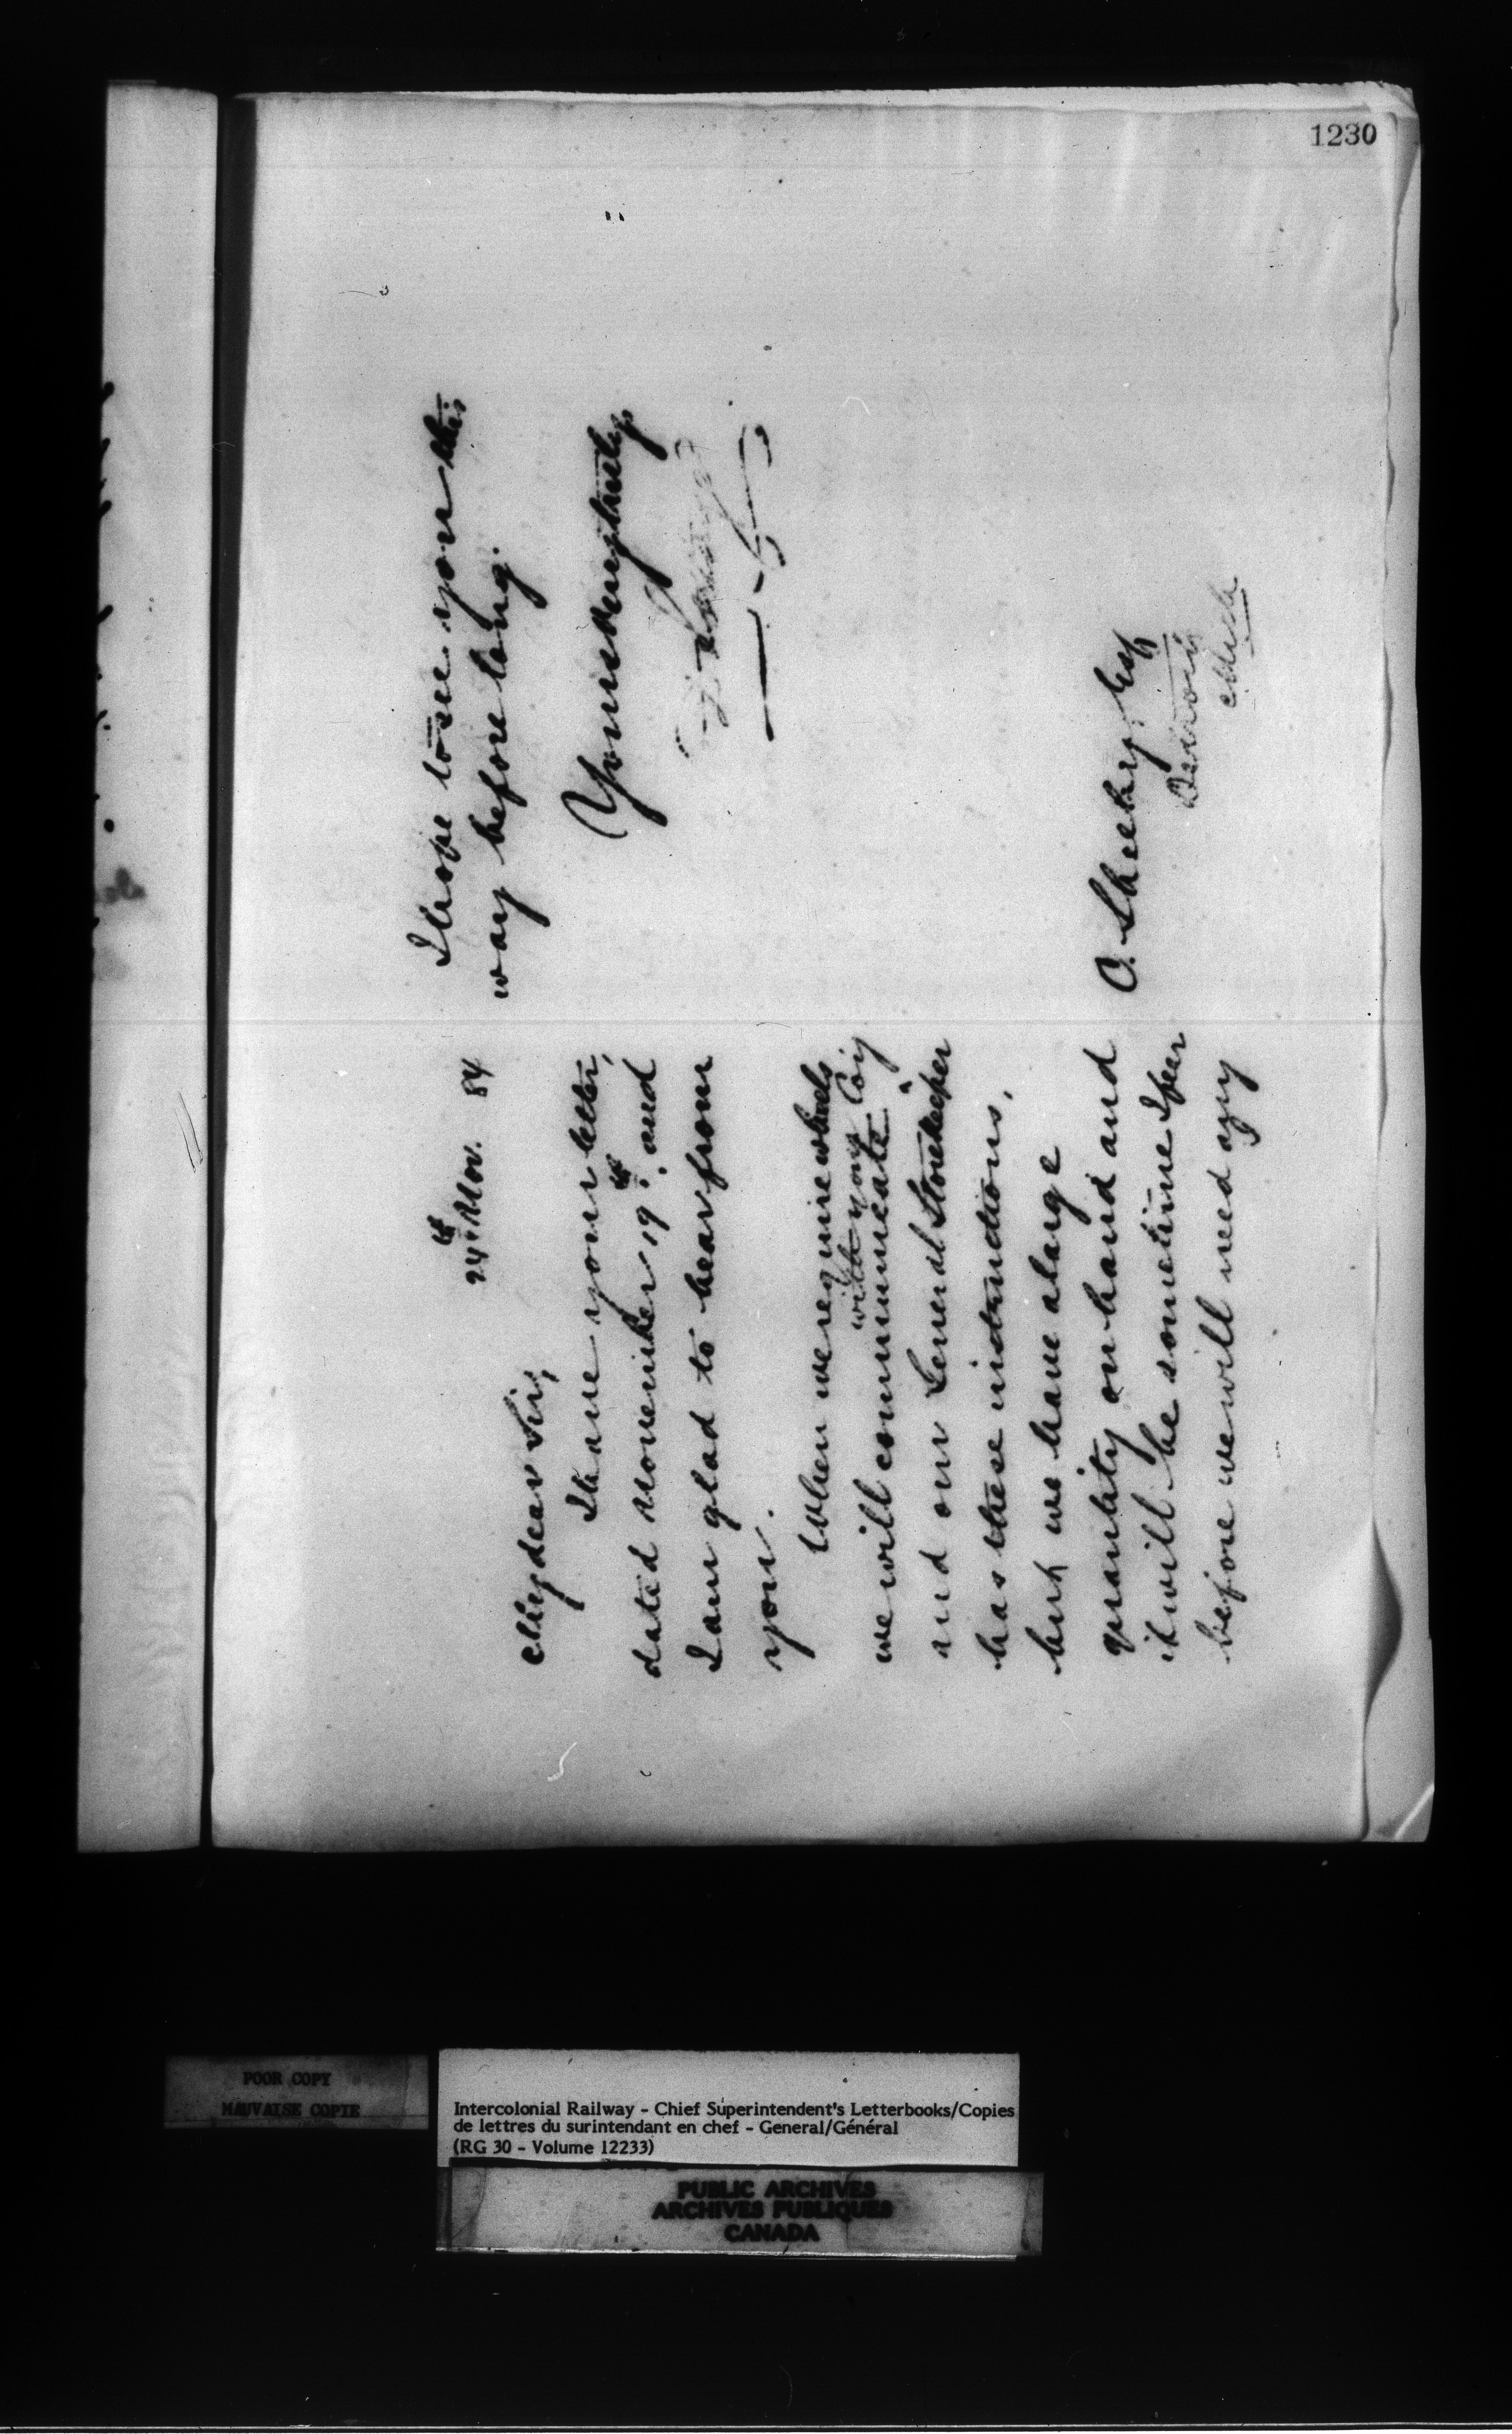 1230
24th Nov. 84
My dear Sir,
I have your letter,
dated November 19th. and
I am glad to hear from
you.
When we require wheels
we will communicate ^ with your Coy
and our General Storekeeper
has these instructions,
but we have a large
quantity on hand and
it will be some time I fear
before we will need any
I hope to see you this
way before long.
Yours very truly
O. Sheeby, Esq
Detroit
Mich
POOR COPY
MAUVAISE COPIE
Intercolonial Railway - Chief Superintendent's Letterbooks/Copies
de lettres du surintendant en chef - General/Général
(RG 30 - Volume 12233)
PUBLIC ARCHIVES
ARCHIVES PUBLIQUES
CANADA